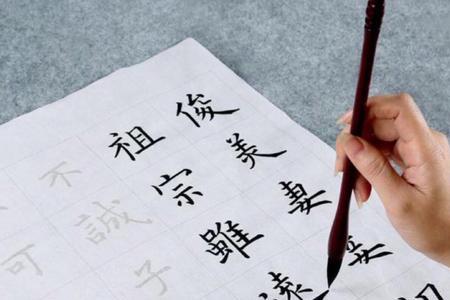 俊美妻妾
祖宗雖遠
不誠子
可